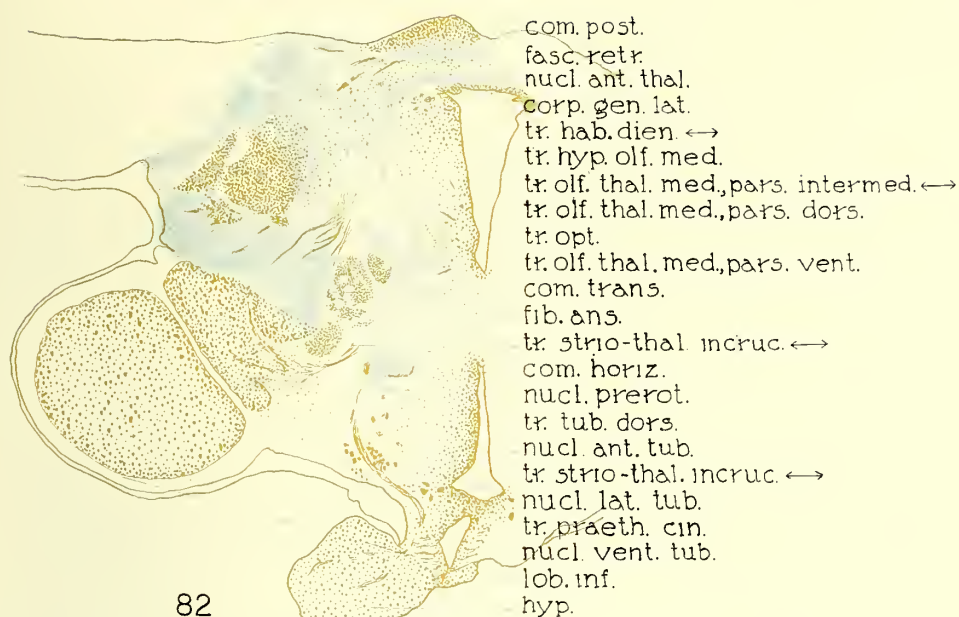 com. post.
fasc. retr.
nucl. ant. thal.
corp. gen. lat.
tr. hab. dien. ↔
tr. hyp. olf. med.
tr. olf. thal. med., pars. intermed. ↔
tr. olf. thal. med., pars. dors.
tr. opt.
tr. olf. thal. med., pars. vent.
com. trans.
fib. ans.
tr. strio-thal. incruc. ↔
com. horiz.
nucl. prerot.
tr. tub. dors.
nucl. ant. tub.
tr. strio-thal. incruc. ↔
nucl. lat. tub.
tr. praeth. cin.
nucl. vent. tub.
lob. inf.
hyp.
82